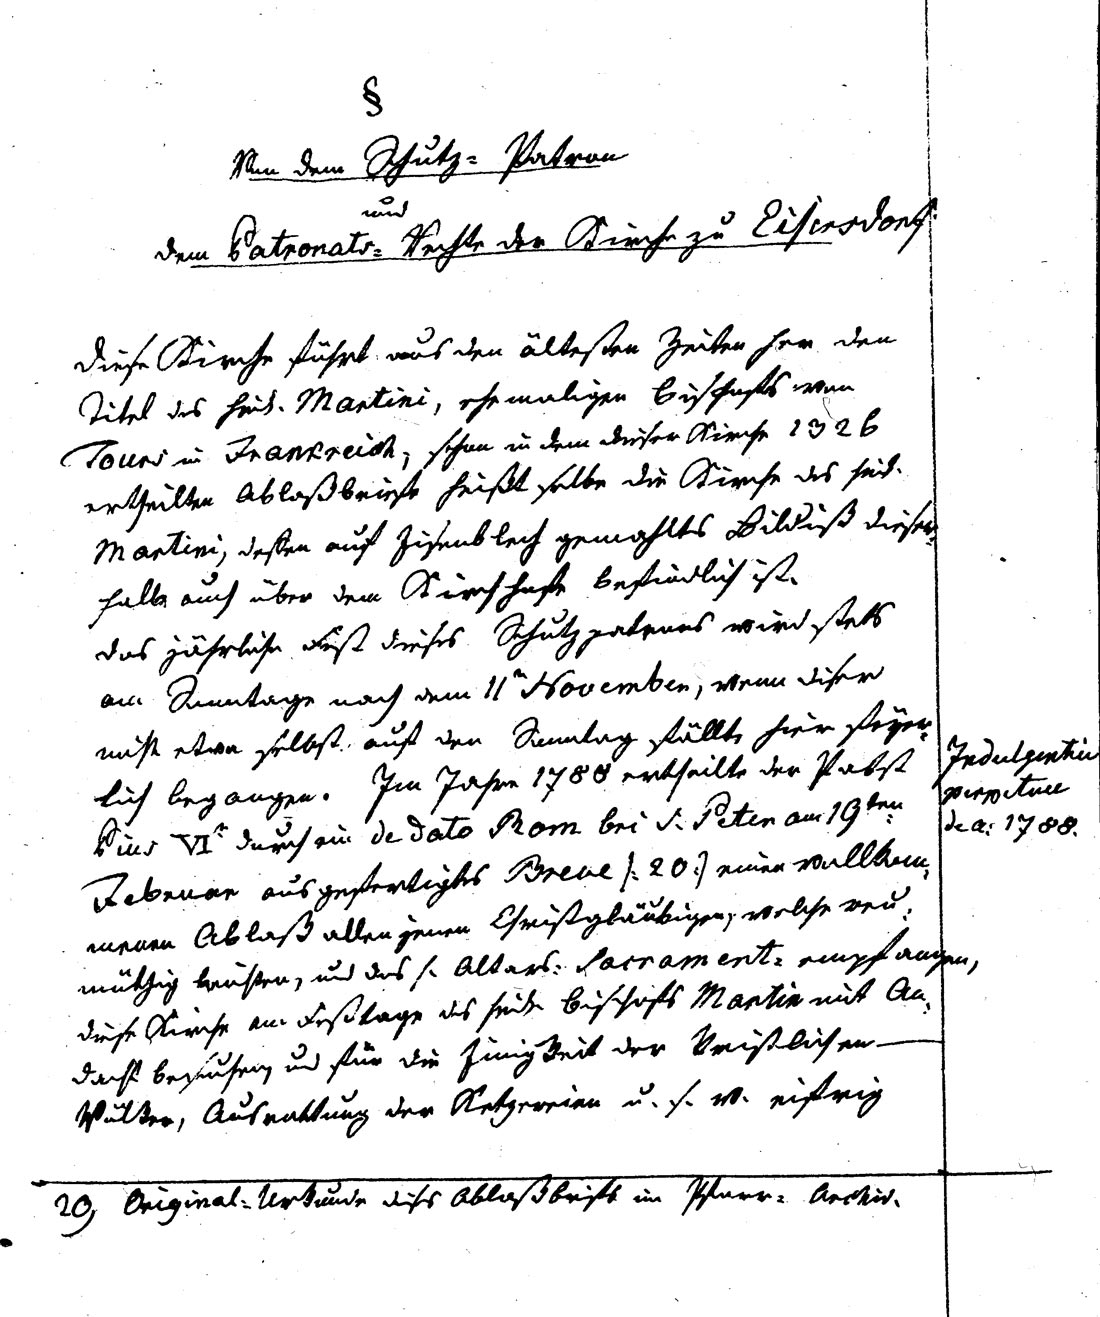 §
Von dem Schutz= Patron
und
dem Patronats= Rechte der Kirche zu Eisersdorf.
Diese Kirche führt aus den ältesten Zeiten her den
Titel des heil. Martini, ehemaligen Bischofs von
Tours in Frankreich, schon in dem dieser Kirche 1326
ertheilten Ablaßbriefe heißt selbe die Kirche des heil.
Martini, deßen auf Eisenblech gemahltes Bildniß dieser=
halb auch über dem Kirchhofe befindlich ist.
Das jährliche Fest dieses Schutzpatrons wird stets
am Sonntage nach dem 11n November, wenn dieser
nicht etwa selbst auf den Sonntag fällt, hier feyer=
lich begangen. Im Jahre 1788 ertheilte der Pabst
Pius VIt durch ein de dato Rom bei S. Peter am 19ten
Februar ausgefertigtes Breve /: 20 :/ einen vollkom=
menen Ablaß allen jenen Christgläubigen, welche reu=
müthig beichten, und das h. Altars= Sacrament= empfangen,
diese Kirche am Festage des heil. Bischofs Martin mit An=
dacht besuchen, und für die Einigkeit der Kristlichen
Völker, Ausrottung der Ketzereien u. s. w. eifrig
Indulgentia
perpetuae
de a: 1788.
20, Original=Urkunde dises Ablaßbriefs im Pfarr= Archiv.